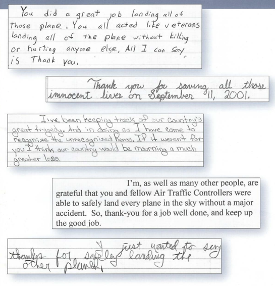 You did a great job landing all of
those plane. You all acted like veterans
landing all of the plane without killing
or hurting anyone else. All I can say
is Thank you.
Thank you for saving all those
innocent lives on September 11, 2001.
I've been keeping track of our country's
great tragedy. And in doing so I have come to
recognize the unrecognized heros. If it weren't for
you I think our country would be mourning a much
greater loss.
I'm, as well as many other people, are
grateful that you and fellow Air Traffic Controllers were
able to safely land every plane in the sky without a major
accident. So, thank-you for a job well done, and keep up
the good job.
I just wanted to say
thanks for safely landing the
other planes!